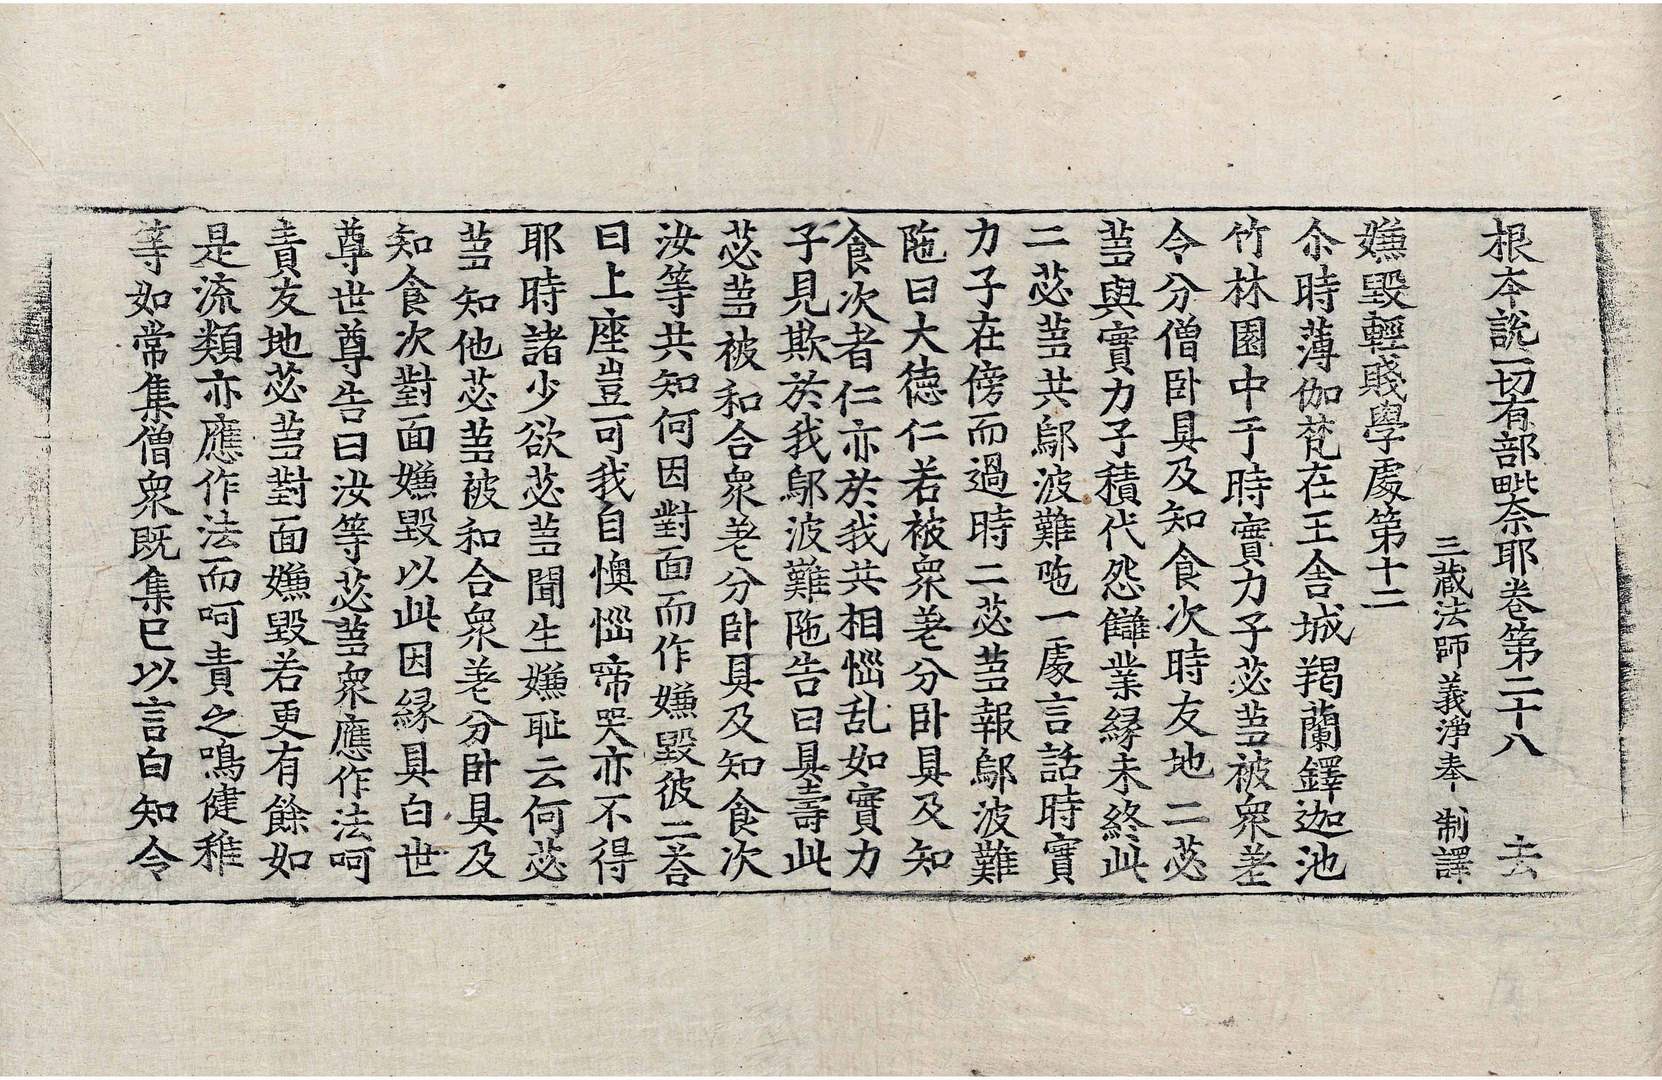 根本說一切有部毗奈耶卷第二十八　去
三藏法師義淨奉　制譯
嫌毀輕賤學處第十二
尒時薄伽梵在王舍城羯蘭鐸迦池
竹林園中于時實力子苾芻被衆差
令分僧卧具及知食次時友地二苾
芻與實力子積代怨讎業緣未終此
二苾芻共鄔波難陁一處言話時實
力子在傍而過時二苾芻報鄔波難
陁曰大德仁若被衆差分卧具及知
食次者仁亦於我共相惱乱如實力
子見欺於我鄔波難陁告曰具壽此
苾芻被和合衆差分卧具及知食次
汝等共知何因對面而作嫌毀彼二荅
曰上座豈可我自懊惱啼哭亦不得
耶時諸少欲苾芻聞生嫌耻云何苾
芻知他苾芻被和合衆差分卧具及
知食次對面嫌毀以此因緣具白世
尊世尊告曰汝等苾芻衆應作法呵
責友地苾芻對面嫌毀若更有餘如
是流類亦應作法而呵責之鳴健稚
等如常集僧衆既集已以言白知令